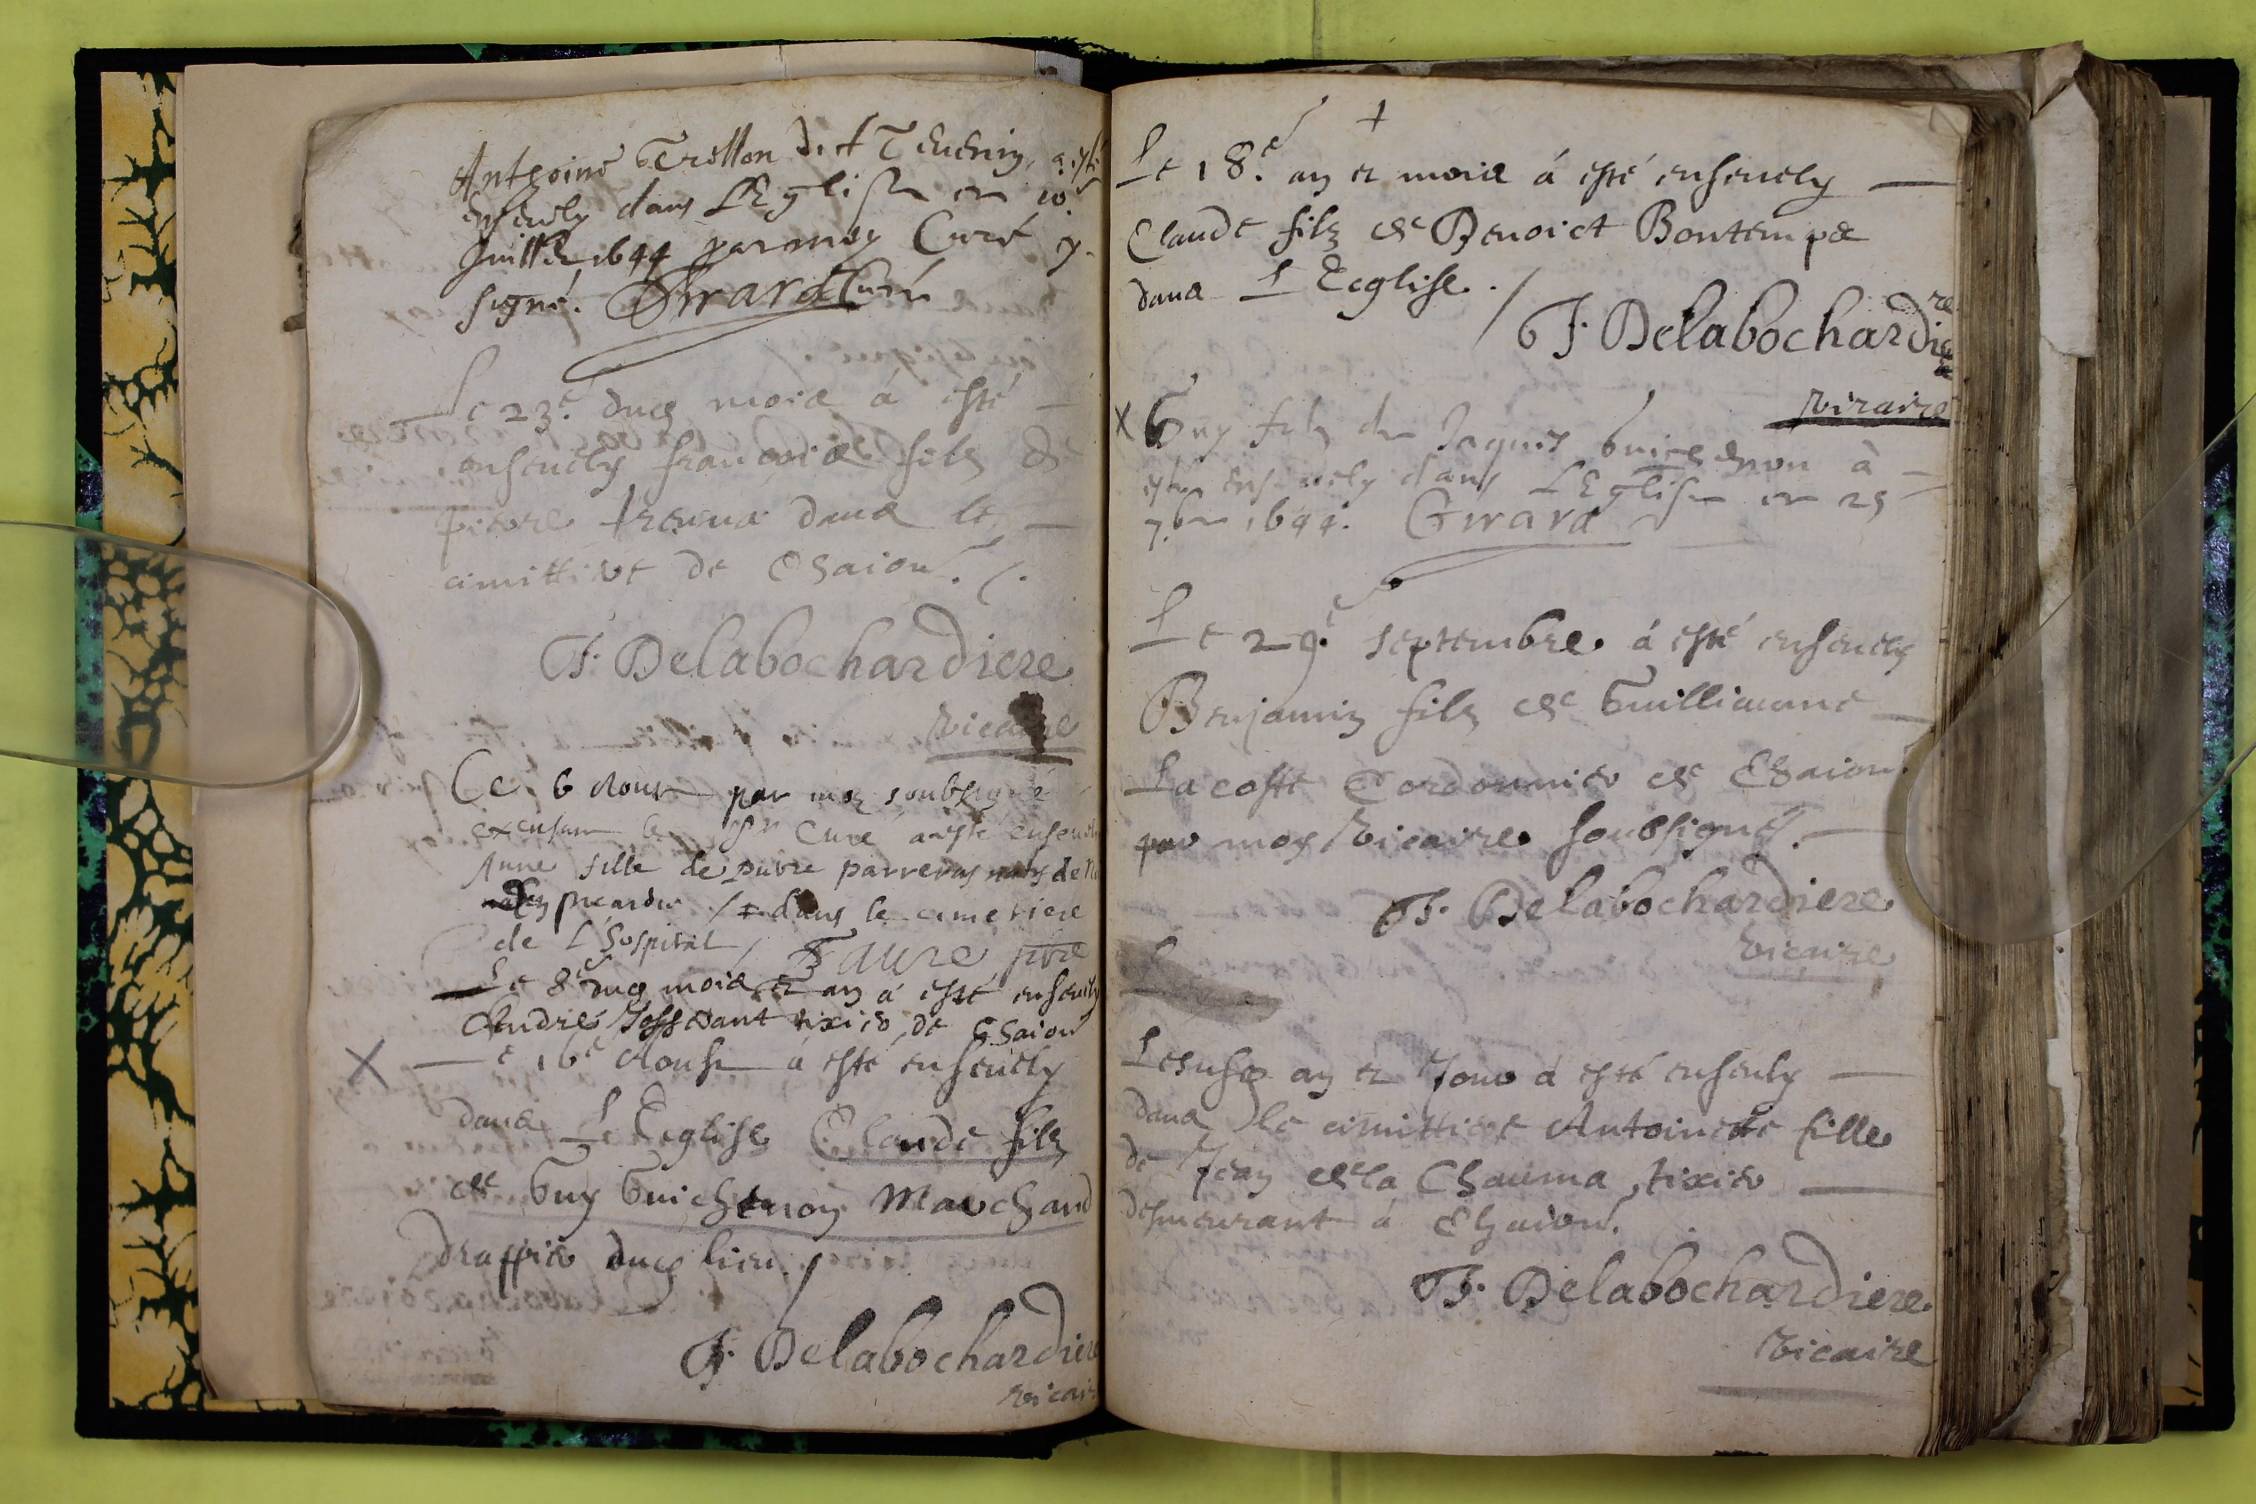 Anthoine Trellon dict Thevenin, a esté
ensevely dans L'Eglise ce 10e
Juillet 1644 par moy Curé
signé. Girard Curé
Le 23.e dud mois á esté
ensevely françois filz de
pierre dans le
cimittiere de Chaion. /.
F. Delabochardiere
vicaire
Ce 6 Aoust par moy soubsigné
le Sr Curé a esté ensevely
Anne fille de piere
en picardie / dans le cimetiere
de L'hospital / Faure pbre
Le 8e dud mois et an á esté ensevely
André tixier de Chaion
X Le 16e Aoust a esté ensevely
dans L'Eeglise Claude filz
de Guy Guichenon Marchand
drappier dud lieu. /
F. Delabochardiere
vicaire
+
Le 18.e an et mois á esté ensevely
Claude filz de Benoict Bontemps
dans L'Eeglise. /
F. Delabochardiere
vicaire
X Guy filz de Jaques Guichenon à
esté ensevely dans L'Eglise ce 25
7.bre 1644. Girard
Le 29.e septembre á esté ensevely
Benjamin filz de Guilliaume
Lacoste Cordonnier de Chaion
par moy Vicaire soubsigné.
F. Delabochardiere
vicaire
L
Lesusd an et Jour á esté ensevely
dans le cimittiere Antoinette fille
de Jean de la Chauma tixier
demeurant á Chaion.
F. Delabochardiere
vicaire